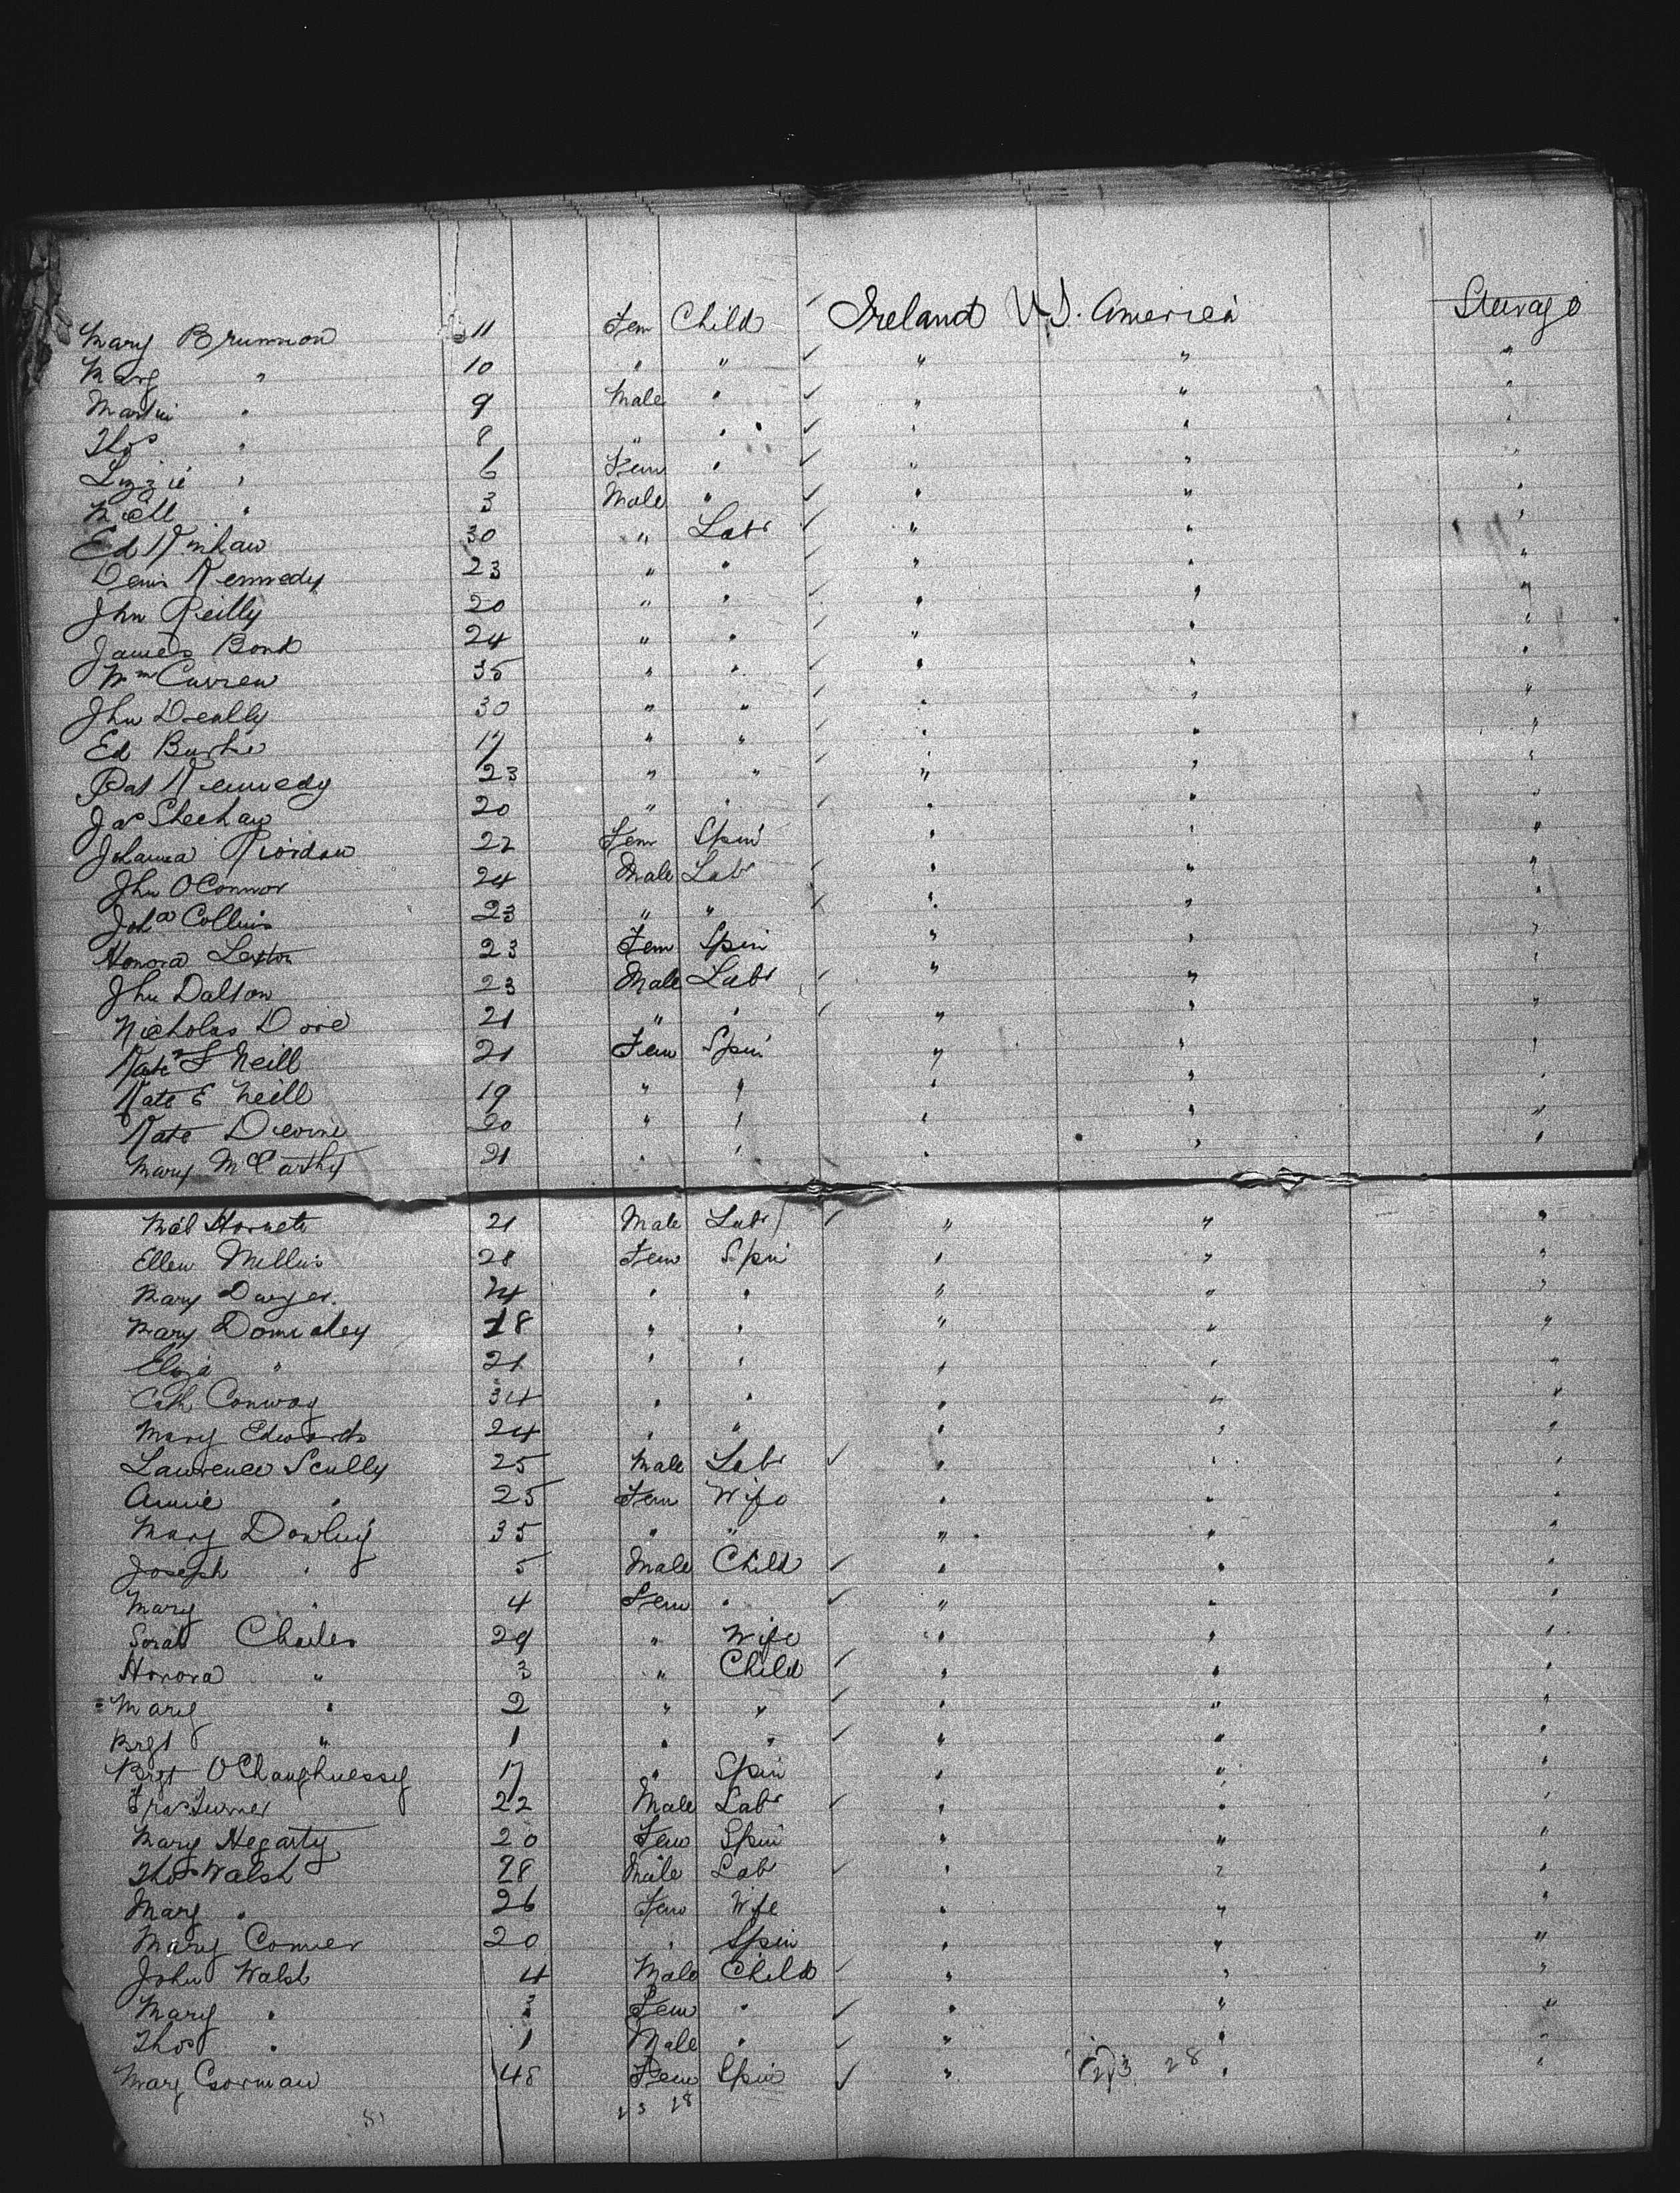 Mary Brunnon 11 Fem Child ✓ Ireland U.S. America Steerage
Marg " 10 " " ✓ " " "
Martin " 9 Male " ✓ " " "
Thos " 8 " " ✓ " " "
Lizzie " 6 Fem " ✓ " " "
Michl " 3 Male " ✓ " " "
Ed 30 " Labr ✓ " " "
Denis Kennedy 23 " " ✓ " " "
Jhn Reilly 20 " " ✓ " " "
James Bond 24 " " ✓ " " "
Wm Curren 35 " " ✓ " " "
Jhn Deally 30 " " ✓ " " "
Ed Burke 17 " " ✓ " " "
Pat Kennedy 23 " " ✓ " " "
Jas Sheehan 20 " " ✓ " " "
Johanna Riordan 22 Fem Spin " " "
Jhn OConnor 24 Male Labr ✓ " " "
Joha Collins 23 " " ✓ " " "
Honora Lexton 23 Fem Spin " " "
Jhn Dalton 23 Male Labr ✓ " " "
Nicholas Dore 21 " " ✓ " " "
Kate F Neill 21 Fem Spin " " "
Kate E Neill 19 " " " " "
Kate Devine 20 " " " " "
Mary McCarthy 21 " " " " "
21 Male Labr ✓ " " "
Ellen Mullins 28 Fem Spin " " "
Mary Dwyer. 24 " " " " "
Mary Donnahey 18 " " " " "
Eliza " 21 " " " " "
Cath Conway 34 " " " " "
Mary Edwards 24 " " " " "
Lawrence Scully 25 Male Labr ✓ " " "
Annie " 25 Fem Wife " " "
Mary Dowling 35 " " " " "
Joseph " 5 Male Child ✓ " " "
Mary " 4 Fem " ✓ " " "
Sarah Charles 29 " Wife " " "
Honora " 3 " Child ✓ " " "
Mary " 2 " " ✓ " " "
Brgt " 1 " " ✓ " " "
Brgt OShaughnessy 17 " Spin " " "
Turner 22 Male Labr ✓ " " "
Mary Hegarty 20 Fem Spin " " "
Thos Walsh 28 Male Labr ✓ " " "
Mary " 26 Fem Wife " " "
Mary Conner 20 " Spin " " "
John Walsh 4 Male Child ✓ " " "
Mary " 3 Fem " ✓ " " "
Thos " 1 Male " ✓ " " "
Mary Gorman 45 Fem Spin ✓ " 23 28 " "
51 23 28